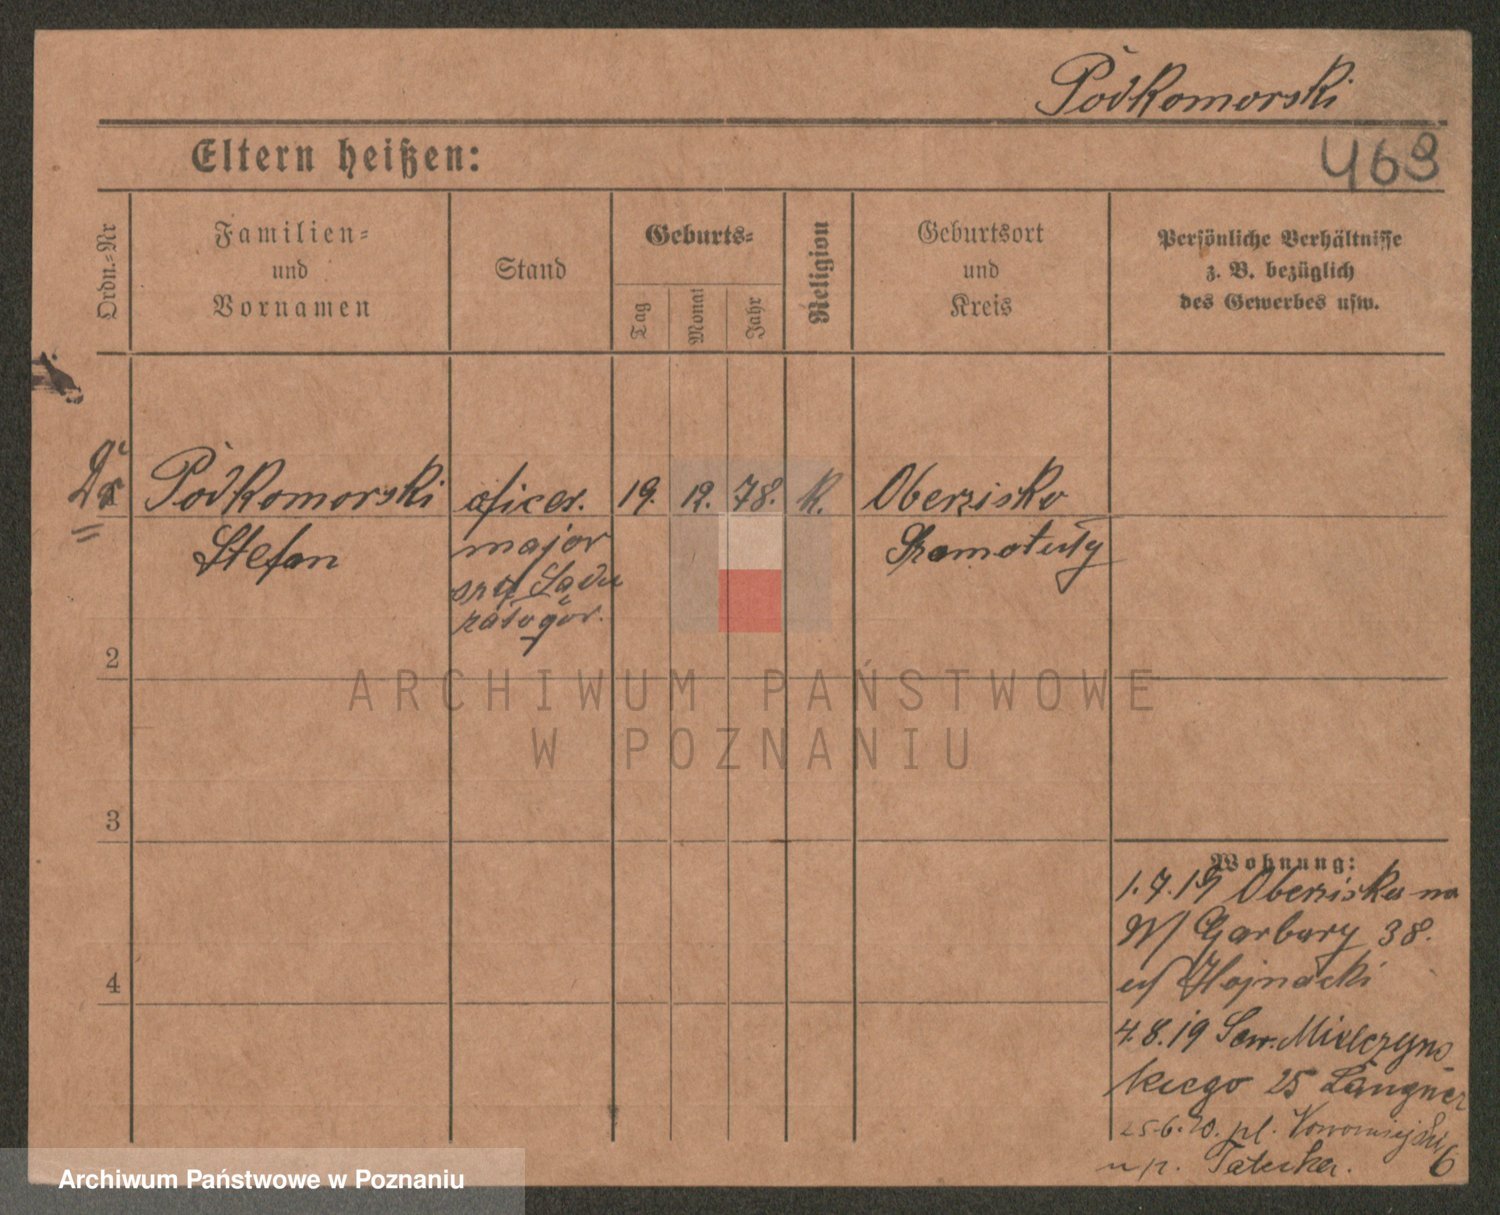 Podkomorski
Eltern heißen:
463
Ordn.=Nr
Familien=
und
Vornamen
Stand
Geburts=
Tag
Monat
Jahr
Religion
Geburtsort
und
Kreis
Persönliche Verhältnisse
z. B. bezüglich
des Gewerbes usw.
Dr
Podkomorski
Stefan
oficer.
major
Sądu
załogor.
19.
12.
78.
K.
Oberzisko
Szamotuły
2
3
4
ARCHIWUM PAŃSTWOWE
W POZNANIU
Wohnung:
1.7.19 Oberzisko na
W/ Garbary 38.
Wojnacki
4.8.19 Sew. Mielczyńs
kiego 25 Langner
25.6.20. pl. Nowomiejski 6
u p. Tatuska.
Archiwum Państwowe w Poznaniu